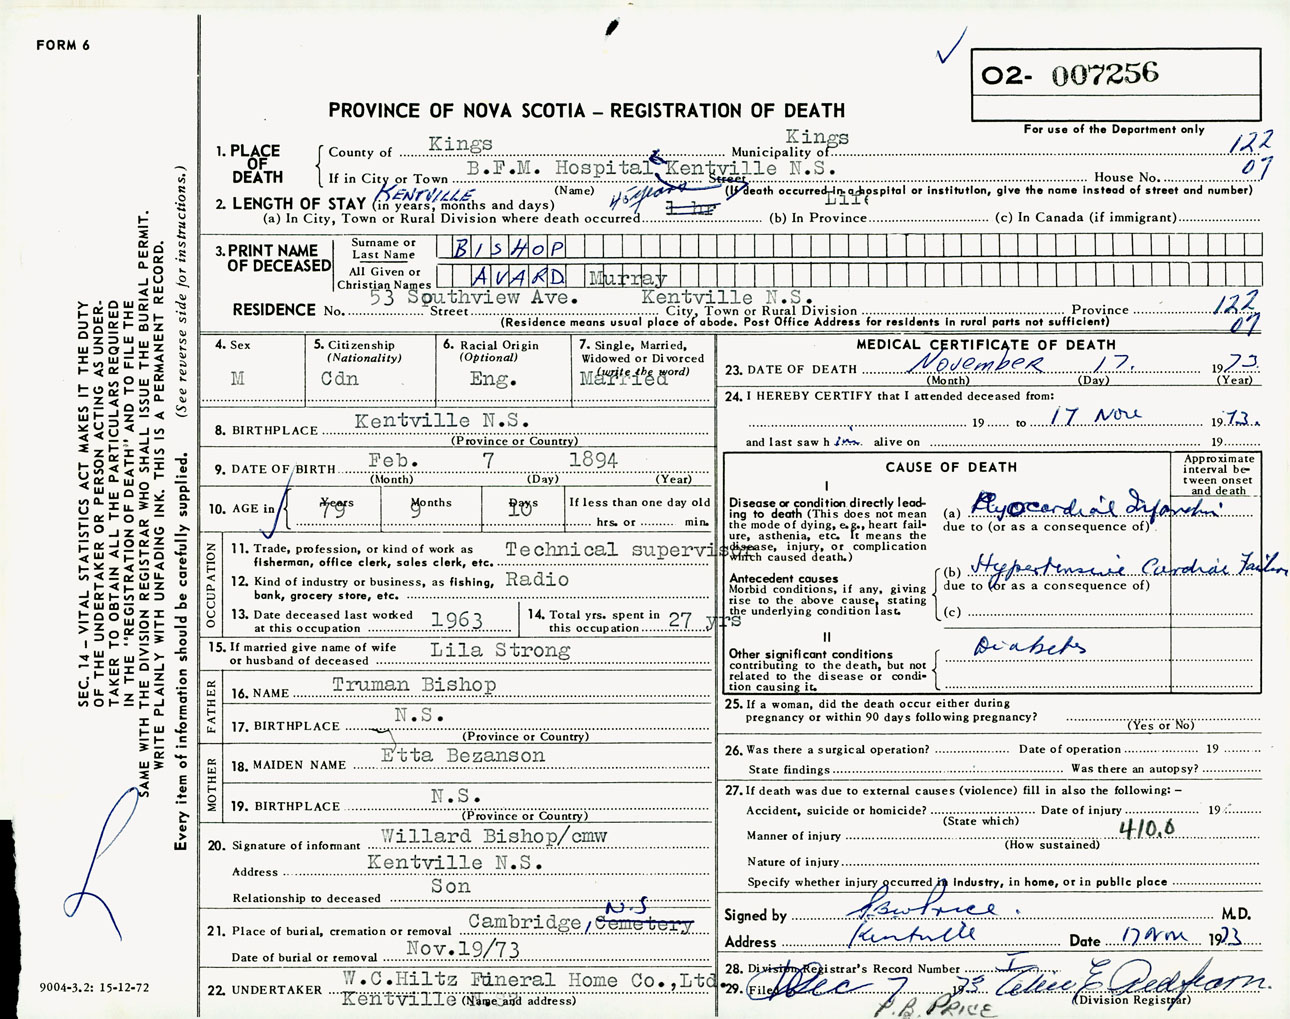 FORM 6
O2- 007256
PROVINCE OF NOVA SCOTIA – REGISTRATION OF DEATH
For use of the Department only
1. PLACE OF DEATH
County of Kings Municipality of Kings 122
If in City or Town B.F.M. Hospital Kentville N.S. Street House No. 07
(Name) (If death occurred in a hospital or institution, give the name instead of street and number)
2. LENGTH OF STAY (in years, months and days) KENTVILLE 45 years Life
(a) In City, Town or Rural Division where death occurred 1 hr (b) In Province (c) In Canada (if immigrant)
3. PRINT NAME OF DECEASED
Surname or Last Name BISHOP
All Given or Christian Names AVARD Murray
53 Southview Ave. Kentville N.S.
RESIDENCE No. Street City, Town or Rural Division Province 122
(Residence means usual place of abode. Post Office Address for residents in rural parts not sufficient) 07
4. Sex M
5. Citizenship (Nationality) Cdn
6. Racial Origin (Optional) Eng.
7. Single, Married, Widowed or Divorced (write the word) Married
8. BIRTHPLACE Kentville N.S.
(Province or Country)
9. DATE OF BIRTH Feb. 7 1894
(Month) (Day) (Year)
10. AGE in Years 79 Months 9 Days 10 If less than one day old
hrs. or min.
OCCUPATION
11. Trade, profession, or kind of work as fisherman, office clerk, sales clerk, etc. Technical supervisor
12. Kind of industry or business, as fishing, bank, grocery store, etc. Radio
13. Date deceased last worked at this occupation 1963
14. Total yrs. spent in this occupation 27 yrs
15. If married give name of wife or husband of deceased Lila Strong
FATHER
16. NAME Truman Bishop
17. BIRTHPLACE N.S.
(Province or Country)
MOTHER
18. MAIDEN NAME Etta Bezanson
19. BIRTHPLACE N.S.
(Province or Country)
20. Signature of informant Willard Bishop/cmw
Address Kentville N.S.
Relationship to deceased Son
21. Place of burial, cremation or removal Cambridge, Cemetery N.S
Date of burial or removal Nov.19/73
22. UNDERTAKER W.C.Hiltz Funeral Home Co.,Ltd.
Kentville N.S.
(Name and address)
MEDICAL CERTIFICATE OF DEATH
23. DATE OF DEATH November 17. 1973.
(Month) (Day) (Year)
24. I HEREBY CERTIFY that I attended deceased from:
19 to 17 Nov 1973.
and last saw him alive on 19
CAUSE OF DEATH
Approximate interval between onset and death
I
Disease or condition directly leading to death (This does not mean the mode of dying, e.g., heart failure, asthenia, etc. It means the disease, injury, or complication which caused death.)
(a) Myocardial Infarction
due to (or as a consequence of)
Antecedent causes
Morbid conditions, if any, giving rise to the above cause, stating the underlying condition last.
(b) Hypertensive Cardiac Failure
due to (or as a consequence of)
(c)
II
Other significant conditions contributing to the death, but not related to the disease or condition causing it.
Diabetes
25. If a woman, did the death occur either during pregnancy or within 90 days following pregnancy?
(Yes or No)
26. Was there a surgical operation? Date of operation 19
State findings Was there an autopsy?
27. If death was due to external causes (violence) fill in also the following: –
Accident, suicide or homicide? Date of injury 19
(State which)
Manner of injury 410.0
(How sustained)
Nature of injury
Specify whether injury occurred in industry, in home, or in public place
Signed by PBW Price. M.D.
Address Kentville Date 17 Nov 1973
28. Division Registrar's Record Number
29. Filed Dec 7 1973
(Division Registrar)
P.B. PRICE
SEC. 14 – VITAL STATISTICS ACT MAKES IT THE DUTY
OF THE UNDERTAKER OR PERSON ACTING AS UNDER-
TAKER TO OBTAIN ALL THE PARTICULARS REQUIRED
IN THE "REGISTRATION OF DEATH" AND TO FILE THE
SAME WITH THE DIVISION REGISTRAR WHO SHALL ISSUE THE BURIAL PERMIT.
WRITE PLAINLY WITH UNFADING INK. THIS IS A PERMANENT RECORD.
Every item of information should be carefully supplied. (See reverse side for instructions.)
9004-3.2: 15-12-72